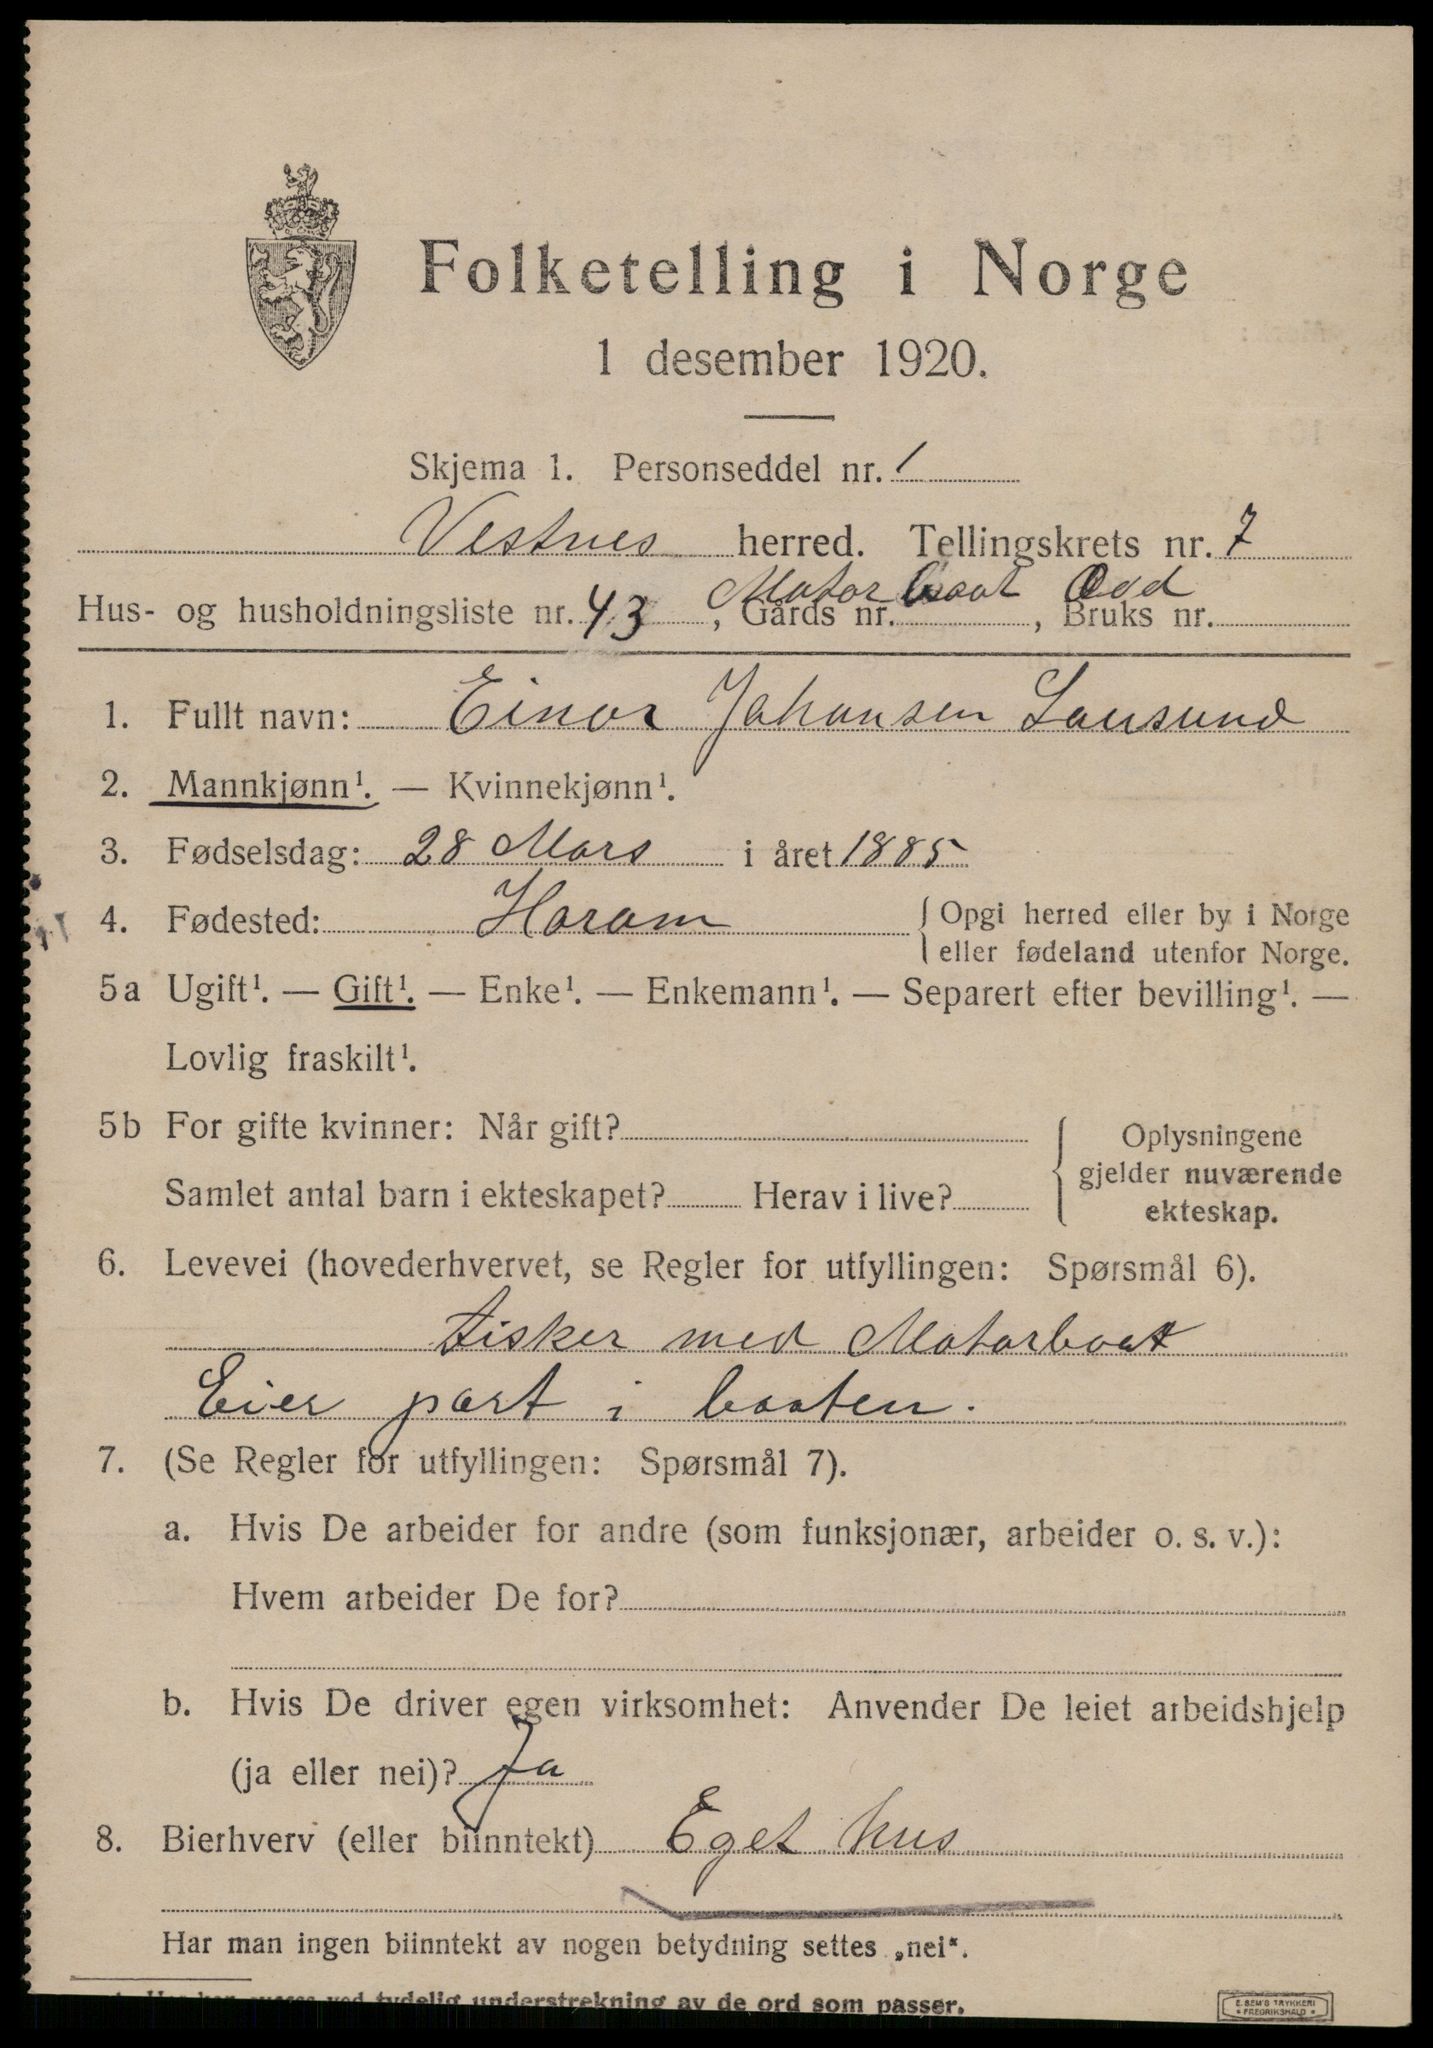 Folketelling i Norge
1 desember 1920.
Skjema 1. Personseddel nr. 1
Vestnes herred. Tellingskrets nr. 7
Motorbaat Odd
Hus- og husholdningsliste nr. 43, Gårds nr. , Bruks nr.
1. Fullt navn: Einar Johansen
2. Mannkjønn¹. — Kvinnekjønn¹.
3. Fødselsdag: 28 Mars i året 1885
4. Fødested: Haram { Opgi herred eller by i Norge
eller fødeland utenfor Norge.
5a Ugift¹. — Gift¹. — Enke¹. — Enkemann¹. — Separert efter bevilling¹. —
Lovlig fraskilt¹.
5b For gifte kvinner: Når gift?
Samlet antal barn i ekteskapet? Herav i live?
{ Oplysningene
gjelder nuværende
ekteskap.
6. Levevei (hovederhvervet, se Regler for utfyllingen: Spørsmål 6).
Fisker med Motorbaat
Eier part i baaten.
7. (Se Regler for utfyllingen: Spørsmål 7).
a. Hvis De arbeider for andre (som funksjonær, arbeider o. s. v.):
Hvem arbeider De for?
b. Hvis De driver egen virksomhet: Anvender De leiet arbeidshjelp
(ja eller nei)? Ja
8. Bierhverv (eller biinntekt) Eget hus
Har man ingen biinntekt av nogen betydning settes „nei“.
ved tydelig understrekning av de ord som passer.
E. SEM'S TRYKKERI
FREDRIKSHALD